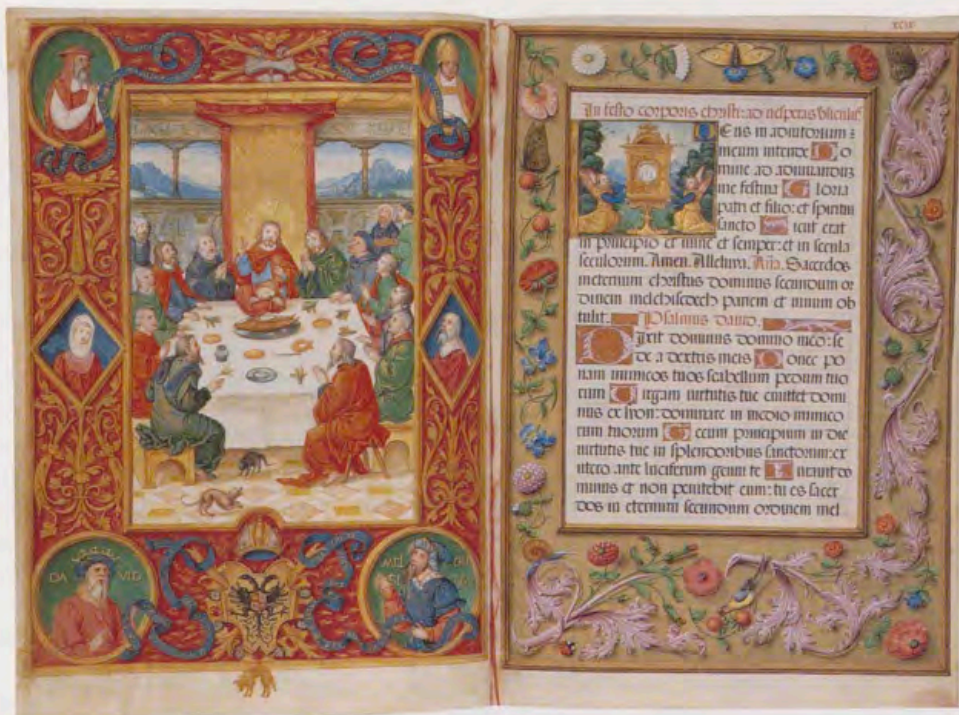 DA VID
MEL CHI
SE
XCIX
In festo corporis christi: ad vesperas
Eus in adiutorium
meum intende Do
mine ad adiuuandum
me festina Gloria
patri et filio: et spiritui
sancto Sicut erat
in principio et nunc et semper: et in secula
seculorum. Amen. Alleluya. Aña. Sacerdos
ineternum christus dominus secundum or
dinem melchisedech panem et uinum ob
tulit. Psalmus dauid.
Dixit dominus domino meo: se
de a dextris meis Donec po
nam inimicos tuos scabellum pedum tuo
rum Uirgam uirtutis tue emittet domi
nus ex syon: dominare in medio inimico
rum tuorum Tecum principium in die
uirtutis tue in splendoribus sanctorum: ex
utero ante luciferum genui te Iurauit do
minus et non penitebit eum: tu es sacer
dos in eternum secundum ordinem mel